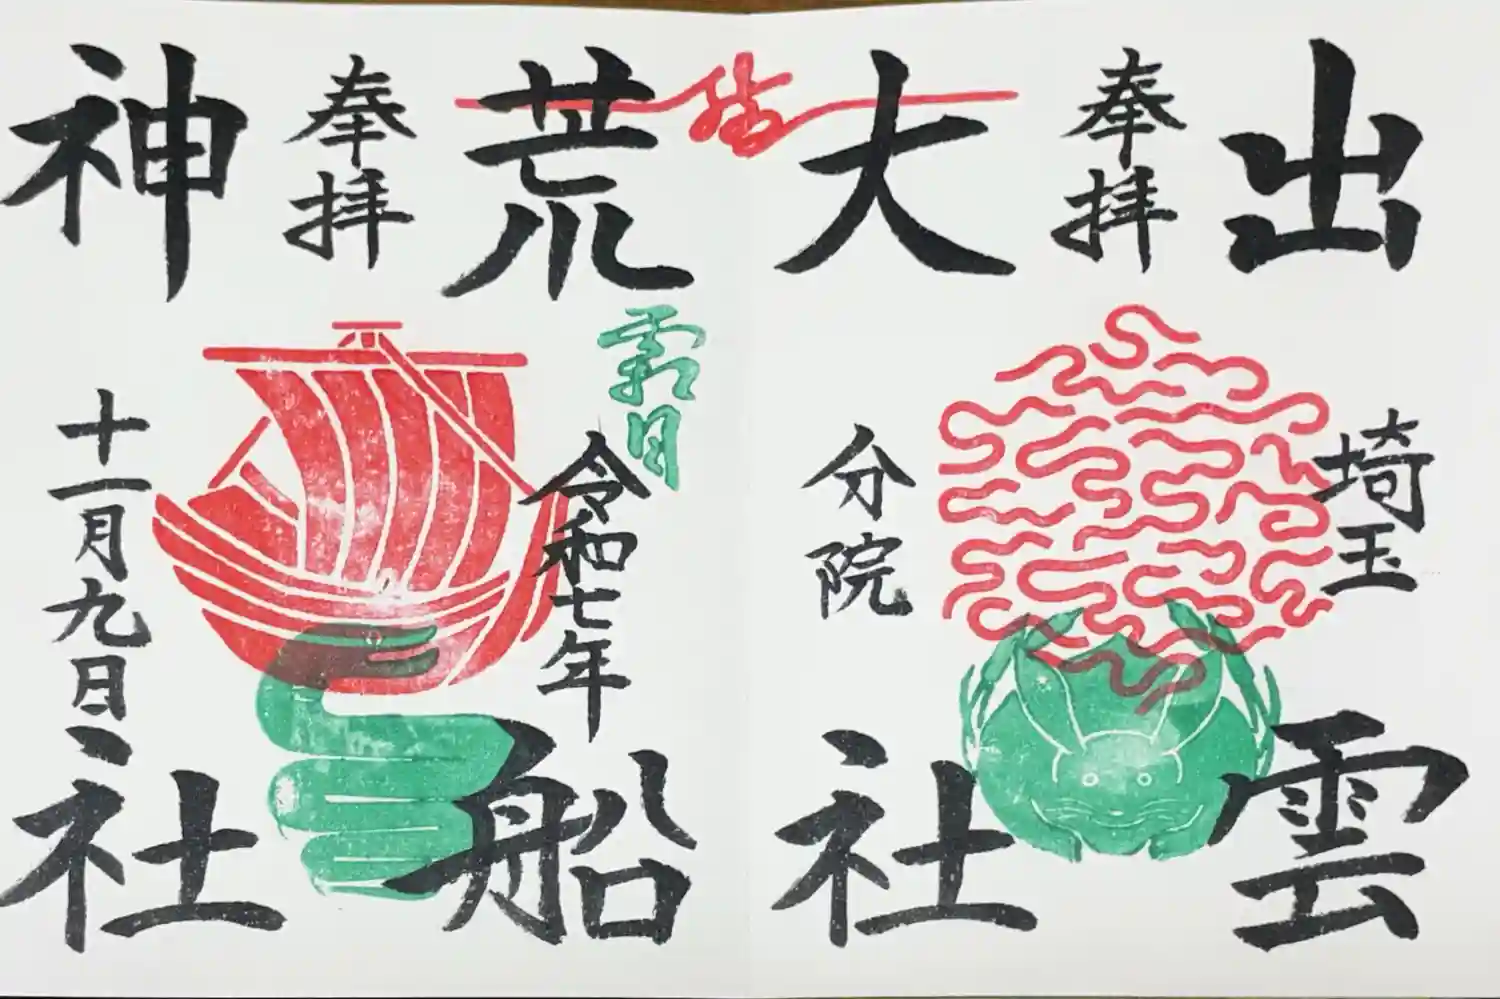 出雲
奉拝
埼玉
大社
分院
結
荒船
霜月
奉拝
令和七年
神社
十一月九日